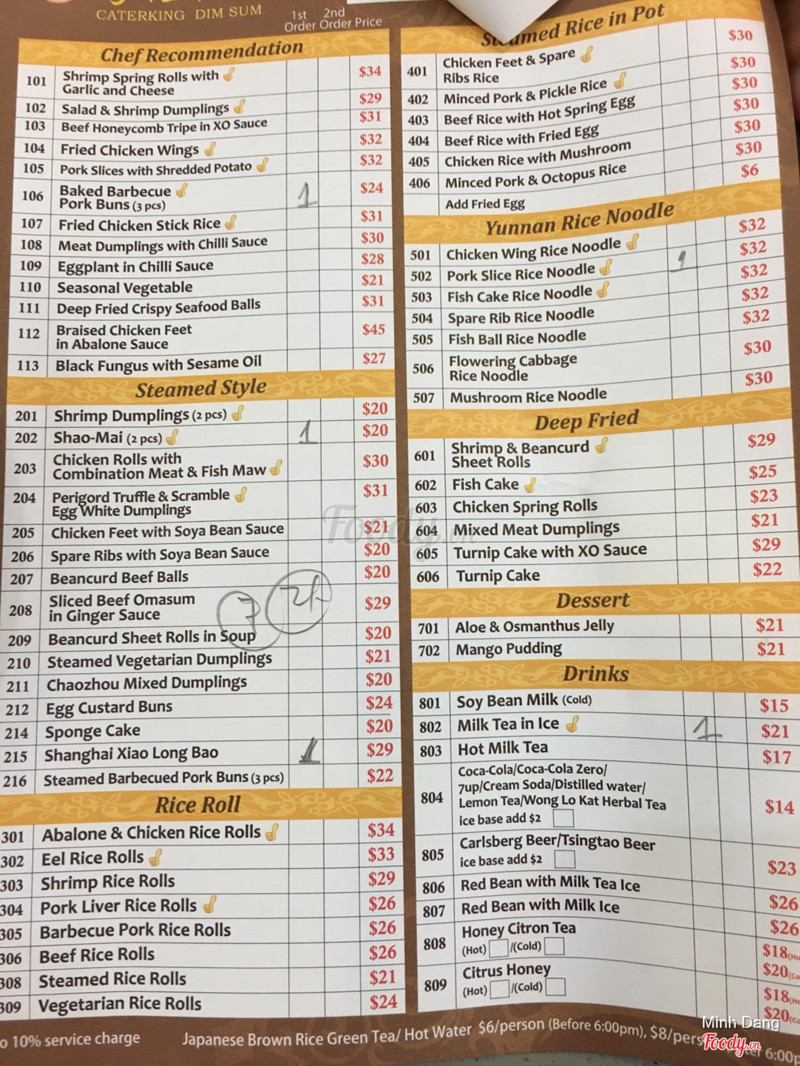 CATERKING DIM SUM
1st 2nd
Order Order Price
Chef Recommendation
101 Shrimp Spring Rolls with
Garlic and Cheese $34
102 Salad & Shrimp Dumplings $29
103 Beef Honeycomb Tripe in XO Sauce $31
104 Fried Chicken Wings $32
105 Pork Slices with Shredded Potato $32
106 Baked Barbecue
Pork Buns (3 pcs) 1 $24
107 Fried Chicken Stick Rice $31
108 Meat Dumplings with Chilli Sauce $30
109 Eggplant in Chilli Sauce $28
110 Seasonal Vegetable $21
111 Deep Fried Crispy Seafood Balls $31
112 Braised Chicken Feet
in Abalone Sauce $45
113 Black Fungus with Sesame Oil $27
Steamed Style
201 Shrimp Dumplings (2 pcs) $20
202 Shao-Mai (2 pcs) 1 $20
203 Chicken Rolls with
Combination Meat & Fish Maw $30
204 Perigord Truffle & Scramble
Egg White Dumplings $31
205 Chicken Feet with Soya Bean Sauce $21
206 Spare Ribs with Soya Bean Sauce $20
207 Beancurd Beef Balls $20
208 Sliced Beef Omasum
in Ginger Sauce $29
209 Beancurd Sheet Rolls in Soup $20
210 Steamed Vegetarian Dumplings $21
211 Chaozhou Mixed Dumplings $20
212 Egg Custard Buns $24
214 Sponge Cake $20
215 Shanghai Xiao Long Bao 1 $29
216 Steamed Barbecued Pork Buns (3 pcs) $22
Rice Roll
301 Abalone & Chicken Rice Rolls $34
302 Eel Rice Rolls $33
303 Shrimp Rice Rolls $29
304 Pork Liver Rice Rolls $26
305 Barbecue Pork Rice Rolls $26
306 Beef Rice Rolls $26
308 Steamed Rice Rolls $21
309 Vegetarian Rice Rolls $24
Steamed Rice in Pot
401 Chicken Feet & Spare
Ribs Rice $30
402 Minced Pork & Pickle Rice $30
403 Beef Rice with Hot Spring Egg $30
404 Beef Rice with Fried Egg $30
405 Chicken Rice with Mushroom $30
406 Minced Pork & Octopus Rice $30
Add Fried Egg $6
Yunnan Rice Noodle
501 Chicken Wing Rice Noodle 1 $32
502 Pork Slice Rice Noodle $32
503 Fish Cake Rice Noodle $32
504 Spare Rib Rice Noodle $32
505 Fish Ball Rice Noodle $32
506 Flowering Cabbage
Rice Noodle $30
507 Mushroom Rice Noodle $30
Deep Fried
601 Shrimp & Beancurd
Sheet Rolls $29
602 Fish Cake $25
603 Chicken Spring Rolls $23
604 Mixed Meat Dumplings $21
605 Turnip Cake with XO Sauce $29
606 Turnip Cake $22
Dessert
701 Aloe & Osmanthus Jelly $21
702 Mango Pudding $21
Drinks
801 Soy Bean Milk (Cold) $15
802 Milk Tea in Ice 1 $21
803 Hot Milk Tea $17
804 Coca-Cola/Coca-Cola Zero/
7up/Cream Soda/Distilled water/
Lemon Tea/Wong Lo Kat Herbal Tea
ice base add $2 $14
805 Carlsberg Beer/Tsingtao Beer
ice base add $2 $23
806 Red Bean with Milk Tea Ice $26
807 Red Bean with Milk Ice $26
808 Honey Citron Tea
(Hot) /(Cold) $18
$20
809 Citrus Honey
(Hot) /(Cold) $18
$20
10% service charge Japanese Brown Rice Green Tea/ Hot Water $6/person (Before 6:00pm), $8/pers
6:00p
Minh Dang
Foody.vn
Foody.vn